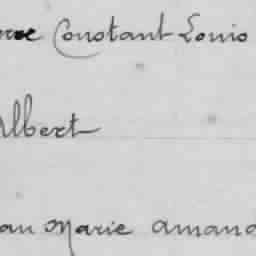 Constant Louis
Albert
Marie Amand